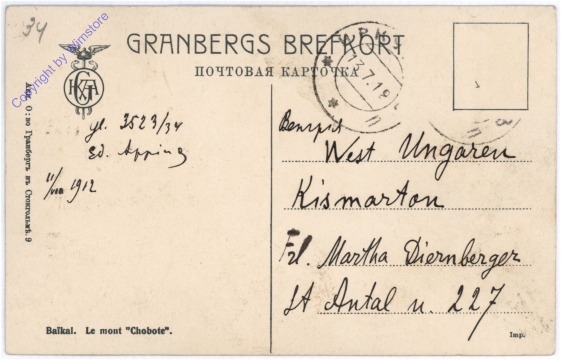 34
Copyright by Wimstore
GRANBERGS BREFKORT
ПОЧТОВАЯ КАРТОЧКА
ИРК
13.7.19
Акц. О-во Гранбергъ въ Стокгольмѣ. 9
yl. 3523/34
Ed. Apping
11/VIII 1912
Венгрія
West Ungaren
Kismarton
Frl. Martha Diernberger
St Antal u. 227
Baïkal. Le mont "Chobote".
Imp.